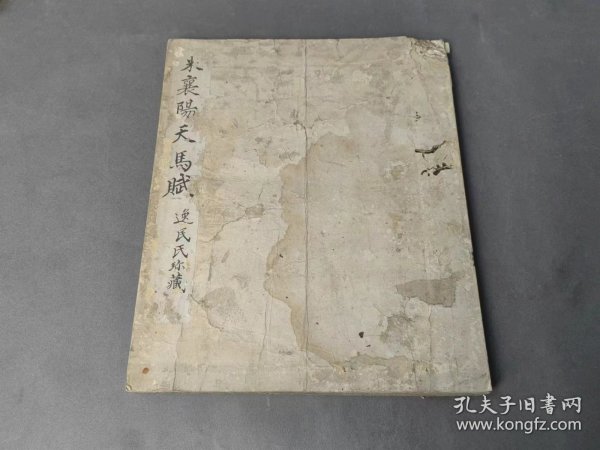 米襄陽天馬賦
逸民氏珍藏
孔夫子旧書网
www.kongfz.com